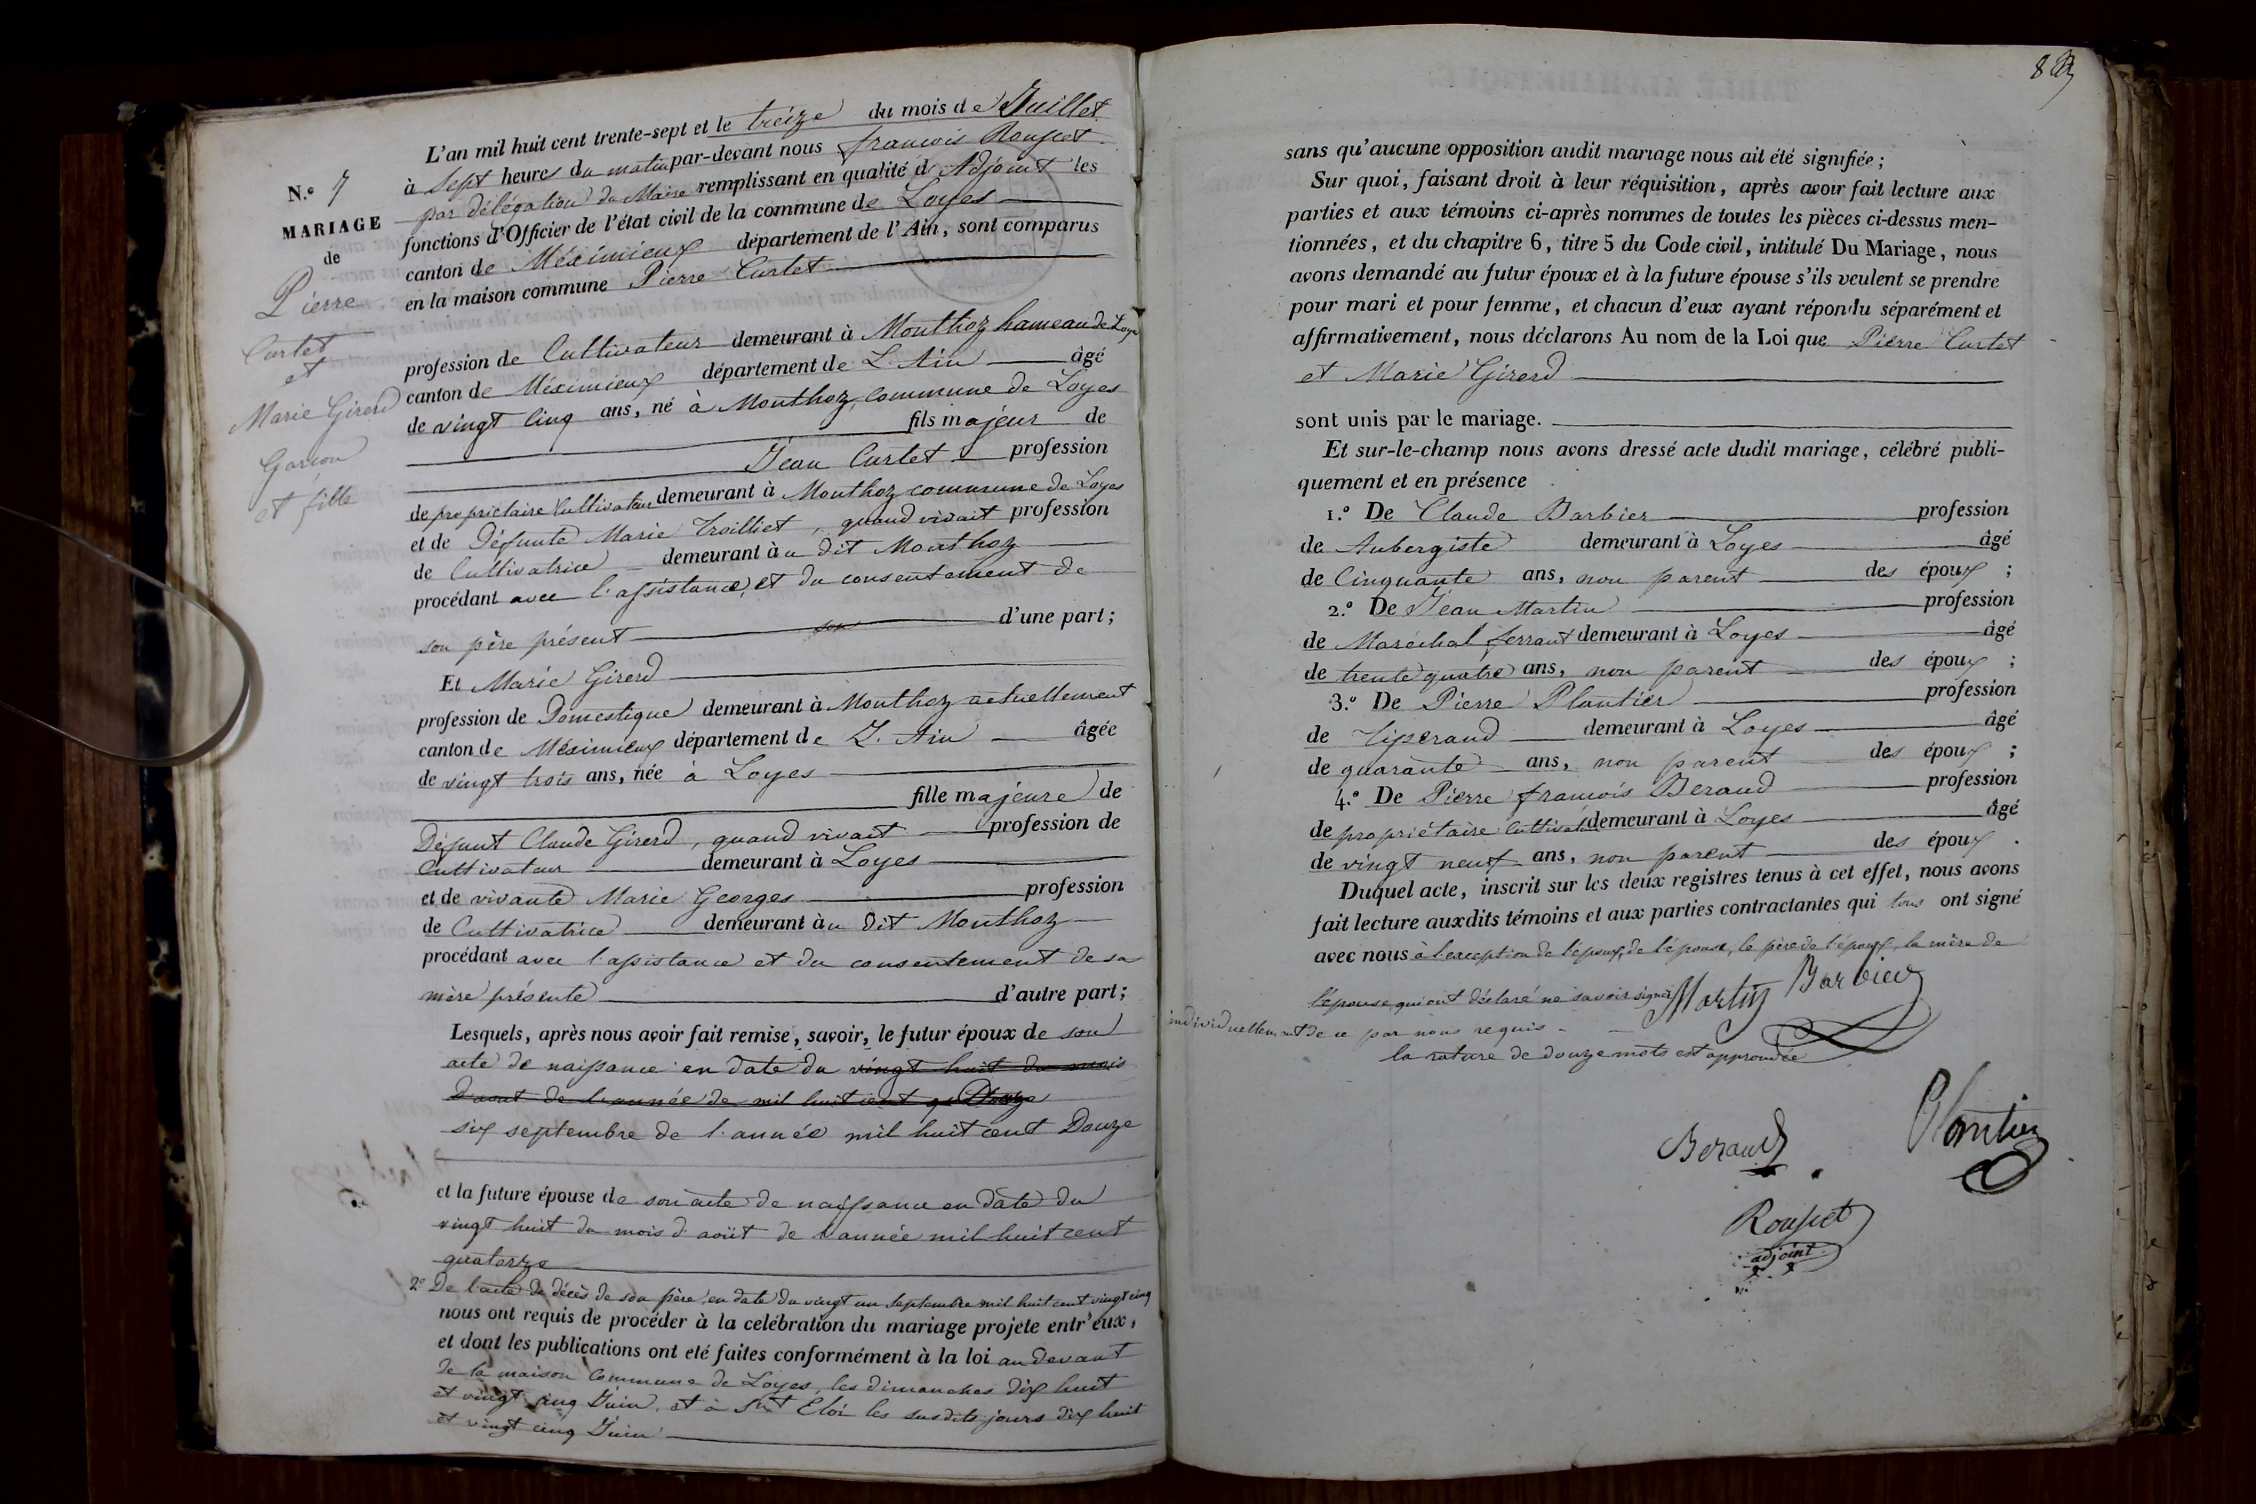 L'an mil huit cent trente-sept et le treize du mois de Juillet
à sept heures du matin par-devant nous francois Rousset
par délégation du Maire remplissant en qualité d'Adjoint les
fonctions d'Officier de l'état civil de la commune de Loyes
canton de Méximieux département de l'Ain, sont comparus
en la maison commune Pierre Curtet
N.º 7
MARIAGE
de
Pierre
Curtet
et
Marie Girerd
Garcon
et fille
profession de Cultivateur demeurant à Monthoz hameau de Loyes
canton de Méximieux département de L'Ain âgé
de vingt cinq ans, né à Monthoz, commune de Loyes
fils majeur de
Jean Curtet profession
de propriétaire Cultivateur demeurant à Monthoz commune de Loyes
et de Défunte Marie Troilliet, quand vivait profession
de Cultivatrice demeurant à u dit Monthoz
procédant avec l'assistance, et du consentement de
son père présent son d'une part;
Et Marie Girerd
profession de Domestique demeurant à Monthoz actuellement
canton de Méximieux département de L'Ain âgée
de vingt trois ans, née à Loyes
fille majeure de
Défunt Claude Girerd, quand vivait profession de
Cultivateur demeurant à Loyes
et de vivante Marie Georges profession
de Cultivatrice demeurant à u dit Monthoz
procédant avec l'assistance et du consentement de sa
mère présente d'autre part;
Lesquels, après nous avoir fait remise, savoir, le futur époux de son
acte de naissance en date du vingt huit du mois
D'aout de l'année de mil huit cent Douze
six septembre de l'année mil huit cent Douze
et la future épouse de son acte de naissance en date du
vingt huit du mois d'août de l'année mil huit cent
quatorze
2º De l'acte de décès de son père en date du vingt un septembre mil huit cent vingt cinq
nous ont requis de procéder à la celébration du mariage projete entr'eux,
et dont les publications ont eté faites conformément à la loi au devant
de la maison Commune de Loyes, les dimanches dix huit
et vingt cinq Juin, et à St Eloi les susdits jours dix huit
et vingt cinq Juin
sans qu'aucune opposition audit mariage nous ait été signifiée;
Sur quoi, faisant droit à leur réquisition, après avoir fait lecture aux
parties et aux témoins ci-après nommes de toutes les pièces ci-dessus men-
tionnées, et du chapitre 6, titre 5 du Code civil, intitulé Du Mariage, nous
avons demandé au futur époux et à la future épouse s'ils veulent se prendre
pour mari et pour femme, et chacun d'eux ayant répondu séparément et
affirmativement, nous déclarons Au nom de la Loi que Pierre Curtet
et Marie Girerd
sont unis par le mariage.
Et sur-le-champ nous avons dressé acte dudit mariage, célébré publi-
quement et en présence
1.º De Claude Barbier profession
de Aubergiste demeurant à Loyes âgé
de Cinquante ans, non parent des époux;
2.º De Jean Martin profession
de Maréchal ferrant demeurant à Loyes âgé
de trente quatre ans, non parent des époux;
3.º De Pierre Plantier profession
de Tisserand demeurant à Loyes âgé
de quarante ans, non parent des époux;
4.º De Pierre francois Beraud profession
de propriétaire Cultivateur demeurant à Loyes âgé
de vingt neuf ans, non parent des époux.
Duquel acte, inscrit sur les deux registres tenus à cet effet, nous avons
fait lecture auxdits témoins et aux parties contractantes qui tous ont signé
avec nous à l'exception de l'époux, de l'épouse, le père de l'époux, la mère de
l'épouse qui ont déclaré ne savoir signer Martin Barbier
individuellement de ce par nous requis
la rature de douze mots est approuvée
Beraud
Plantier
Rousset
adjoint